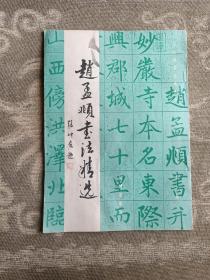 趙孟頫書并
妙嚴寺本名東際
興郡城七十里而
趙孟頫書法精选
山西傍洪澤北臨